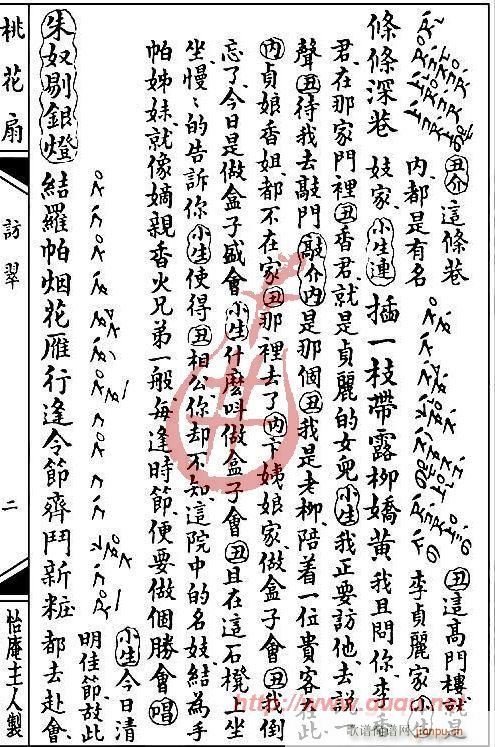 條條深巷
丑介 這條巷
內都是有名
妓家 小生連
插一枝帶露柳嬌黃
我且問你李香
丑 這高門樓就是
李貞麗家 小生
君在那家門裡 丑 香君就是貞麗的女兒 小生 我正要訪他去說一
聲 丑 待我去敲門 敲介內 是那個 丑 我是老柳陪着一位貴客在此
內 貞娘香姐都不在家 丑 那裡去了 內 卞姨娘家做盒子會 丑 我倒
忘了今日是做盒子盛會 小生 什麼叫做盒子會 丑 且在這石櫈上坐
坐慢〻的告訴你 小生 使得 丑 相公你却不知這院中的名妓結為手
帕姊妹就像嫡親香火兄弟一般每逢時節便要做個勝會 唱
朱奴剔銀燈
結羅帕烟花雁行逢令節齊鬥新粧
小生 今日清
明佳節故此
都去赴會
桃花扇
訪翠
二
怡庵主人製
http://www.ququ.net
歌谱简谱网
jianpu.cn